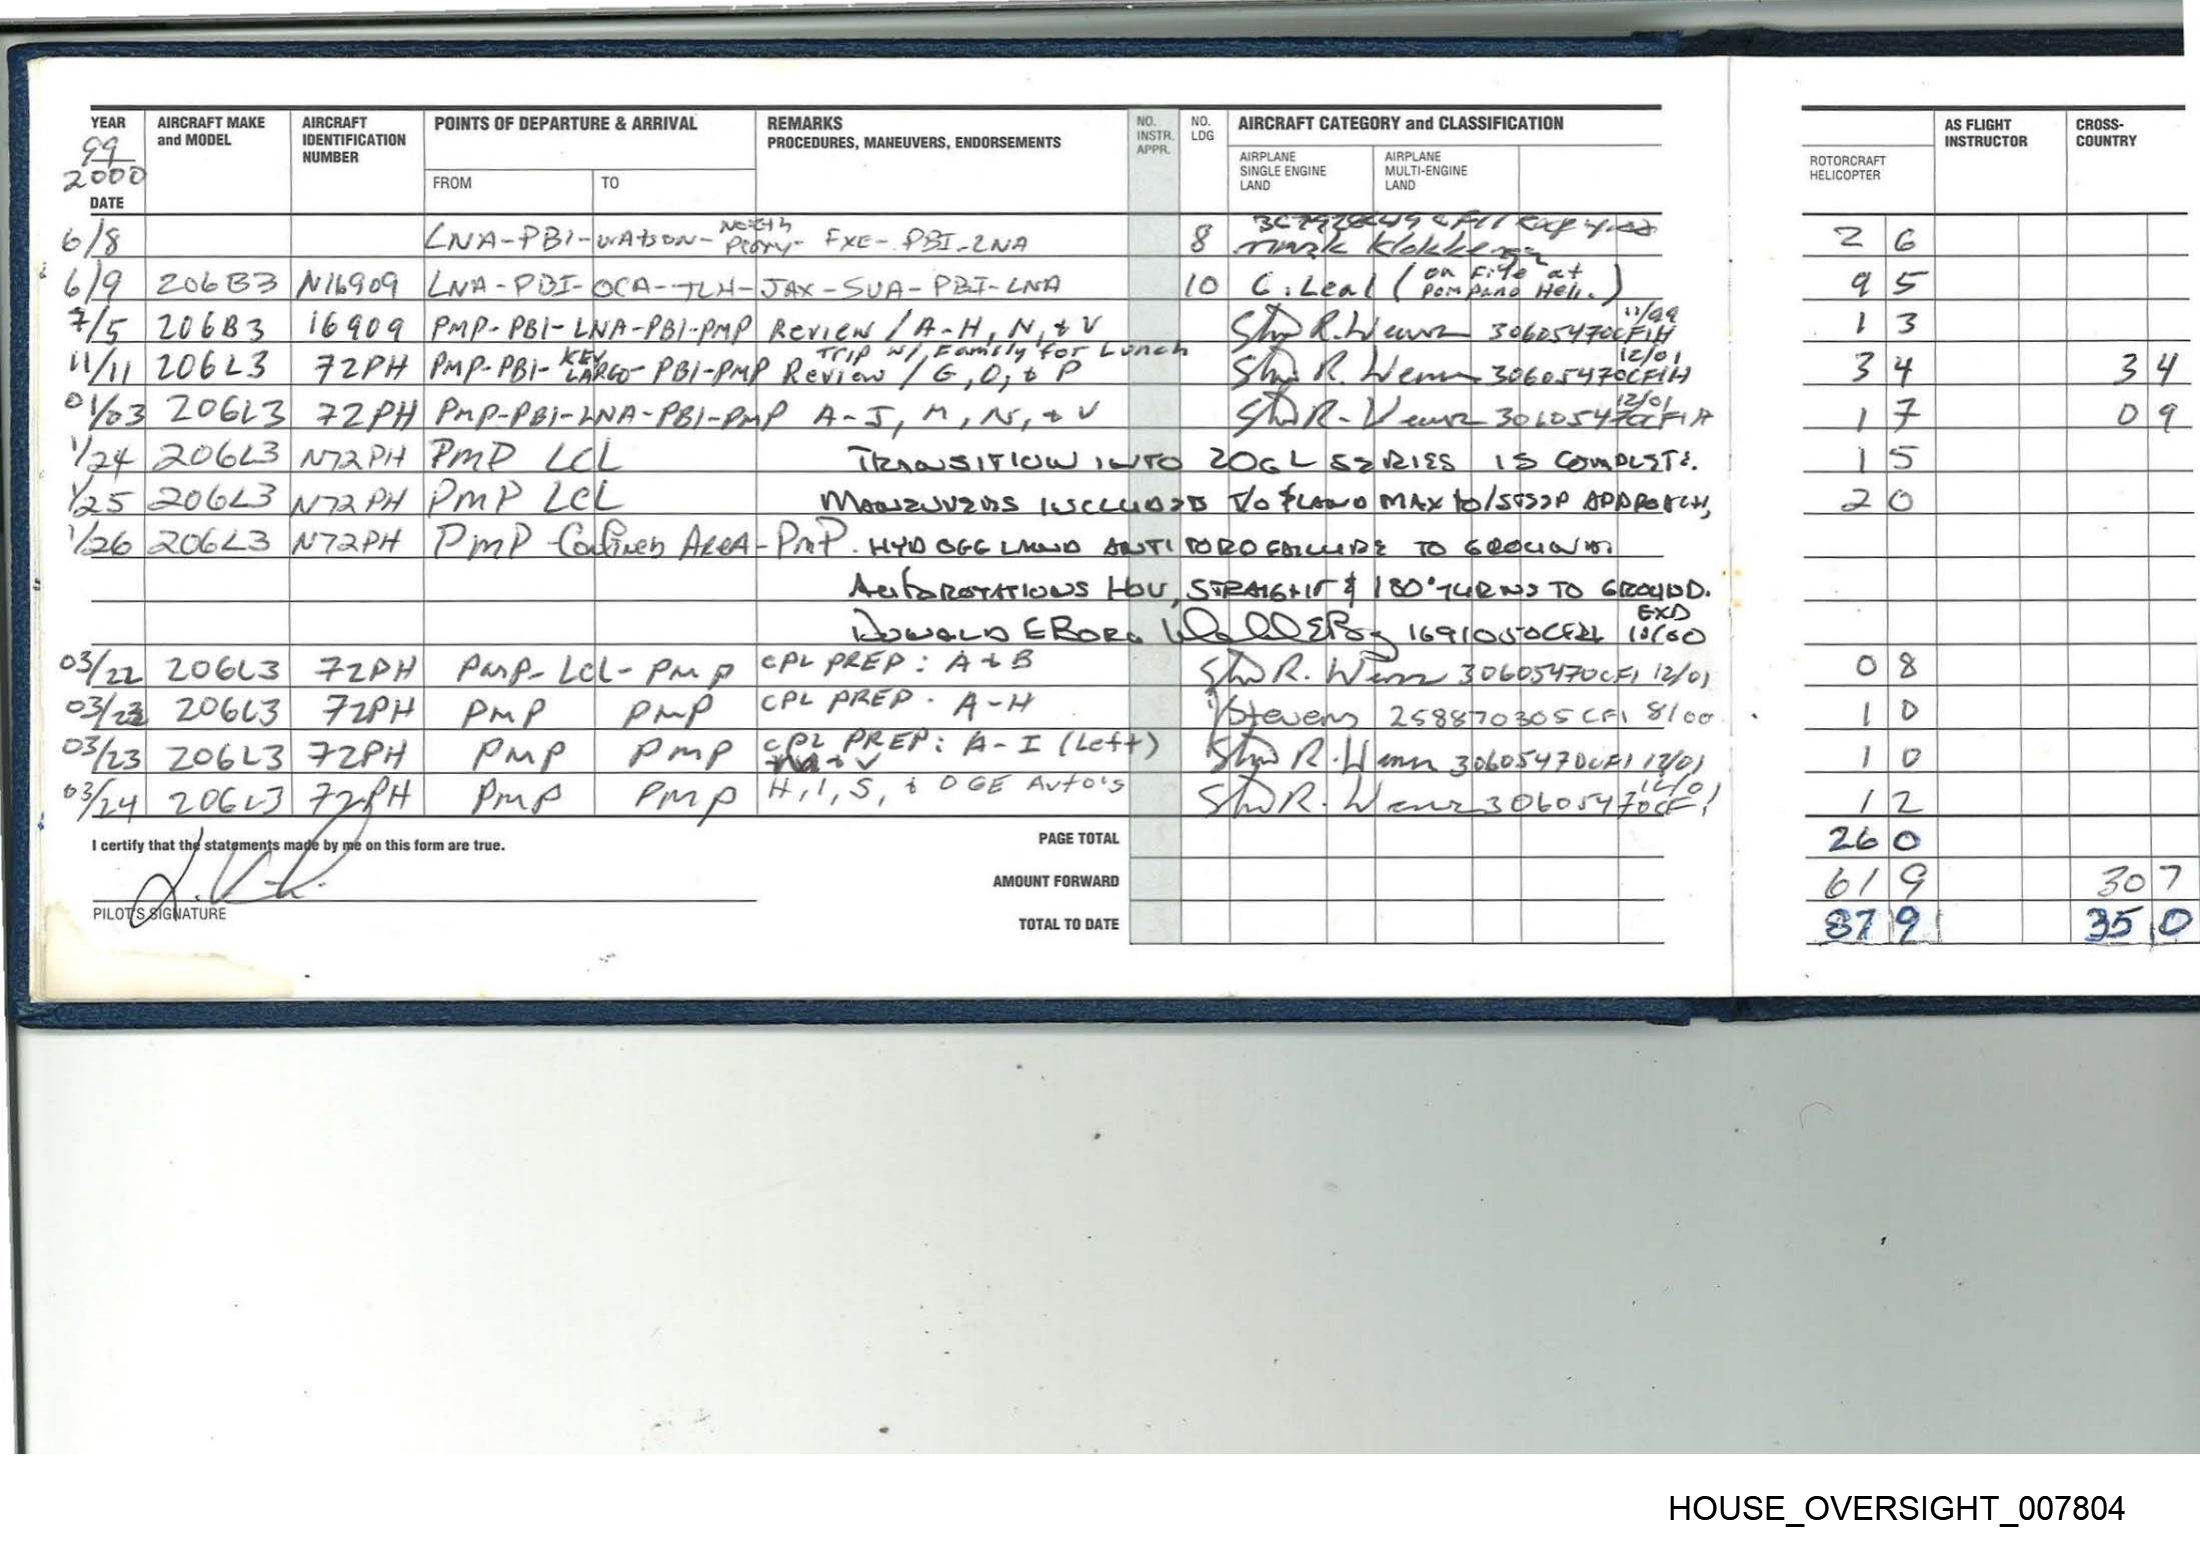 YEAR AIRCRAFT MAKE AIRCRAFT POINTS OF DEPARTURE & ARRIVAL REMARKS NO. NO. AIRCRAFT CATEGORY and CLASSIFICATION AS FLIGHT CROSS-
and MODEL IDENTIFICATION PROCEDURES, MANEUVERS, ENDORSEMENTS INSTR. LDG INSTRUCTOR COUNTRY
99 NUMBER APPR. AIRPLANE AIRPLANE ROTORCRAFT
2000 FROM TO SINGLE ENGINE MULTI-ENGINE HELICOPTER
DATE LAND LAND
6/8 LNA-PBI-WATSON-North Perry- FXE-PBI-LNA 8 Mark 2 6
6/9 206B3 N16909 LNA-PBI-OCA-TLH-JAX-SUA-PBI-LNA 10 C. Leal (on File at Pompano Heli.) 9 5
7/5 206B3 16909 PMP-PBI-LNA-PBI-PMP Review / A-H, N, & V R. 30605470CFIH 11/99 1 3
11/11 206L3 72PH PMP-PBI-KEY LARGO-PBI-PMP Trip w/ Family for Lunch Review / G, O, & P R. 30605470CFIH 12/01 3 4 3 4
01/03 206L3 72PH PMP-PBI-LNA-PBI-PMP A-J, M, N, & V R. 30605470CFI 12/01 1 7 0 9
1/24 206L3 N72PH PMP LCL TRANSITION INTO 206L SERIES IS COMPLETE. 1 5
1/25 206L3 N72PH PMP LCL MANEUVERS INCLUDED T/O & LAND MAX to/STEEP APPROACH, 2 0
1/26 206L3 N72PH PMP-Confined AREA-PMP. HYD OFF LAND ANTI TORQ FAILURE TO GROUND
AUTOROTATIONS HOV, STRAIGHT & 180° TURNS TO GROUND.
DONALD E 1691050CFI EXD 10/00
03/22 206L3 72PH PMP-LCL-PMP CPL PREP: A & B R. 30605470CFI 12/01 0 8
03/23 206L3 72PH PMP PMP CPL PREP. A-H Stevens 258870305CFI 8/00 1 0
03/23 206L3 72PH PMP PMP CPL PREP: A-I (Left) & V R. 30605470CFI 12/01 1 0
03/24 206L3 72PH PMP PMP H, I, S, & OGE Auto's R. 30605470CFI 12/01 1 2
I certify that the statements made by me on this form are true. PAGE TOTAL 26 0
AMOUNT FORWARD 61 9 30 7
PILOT'S SIGNATURE TOTAL TO DATE 87 9 35 0
HOUSE_OVERSIGHT_007804